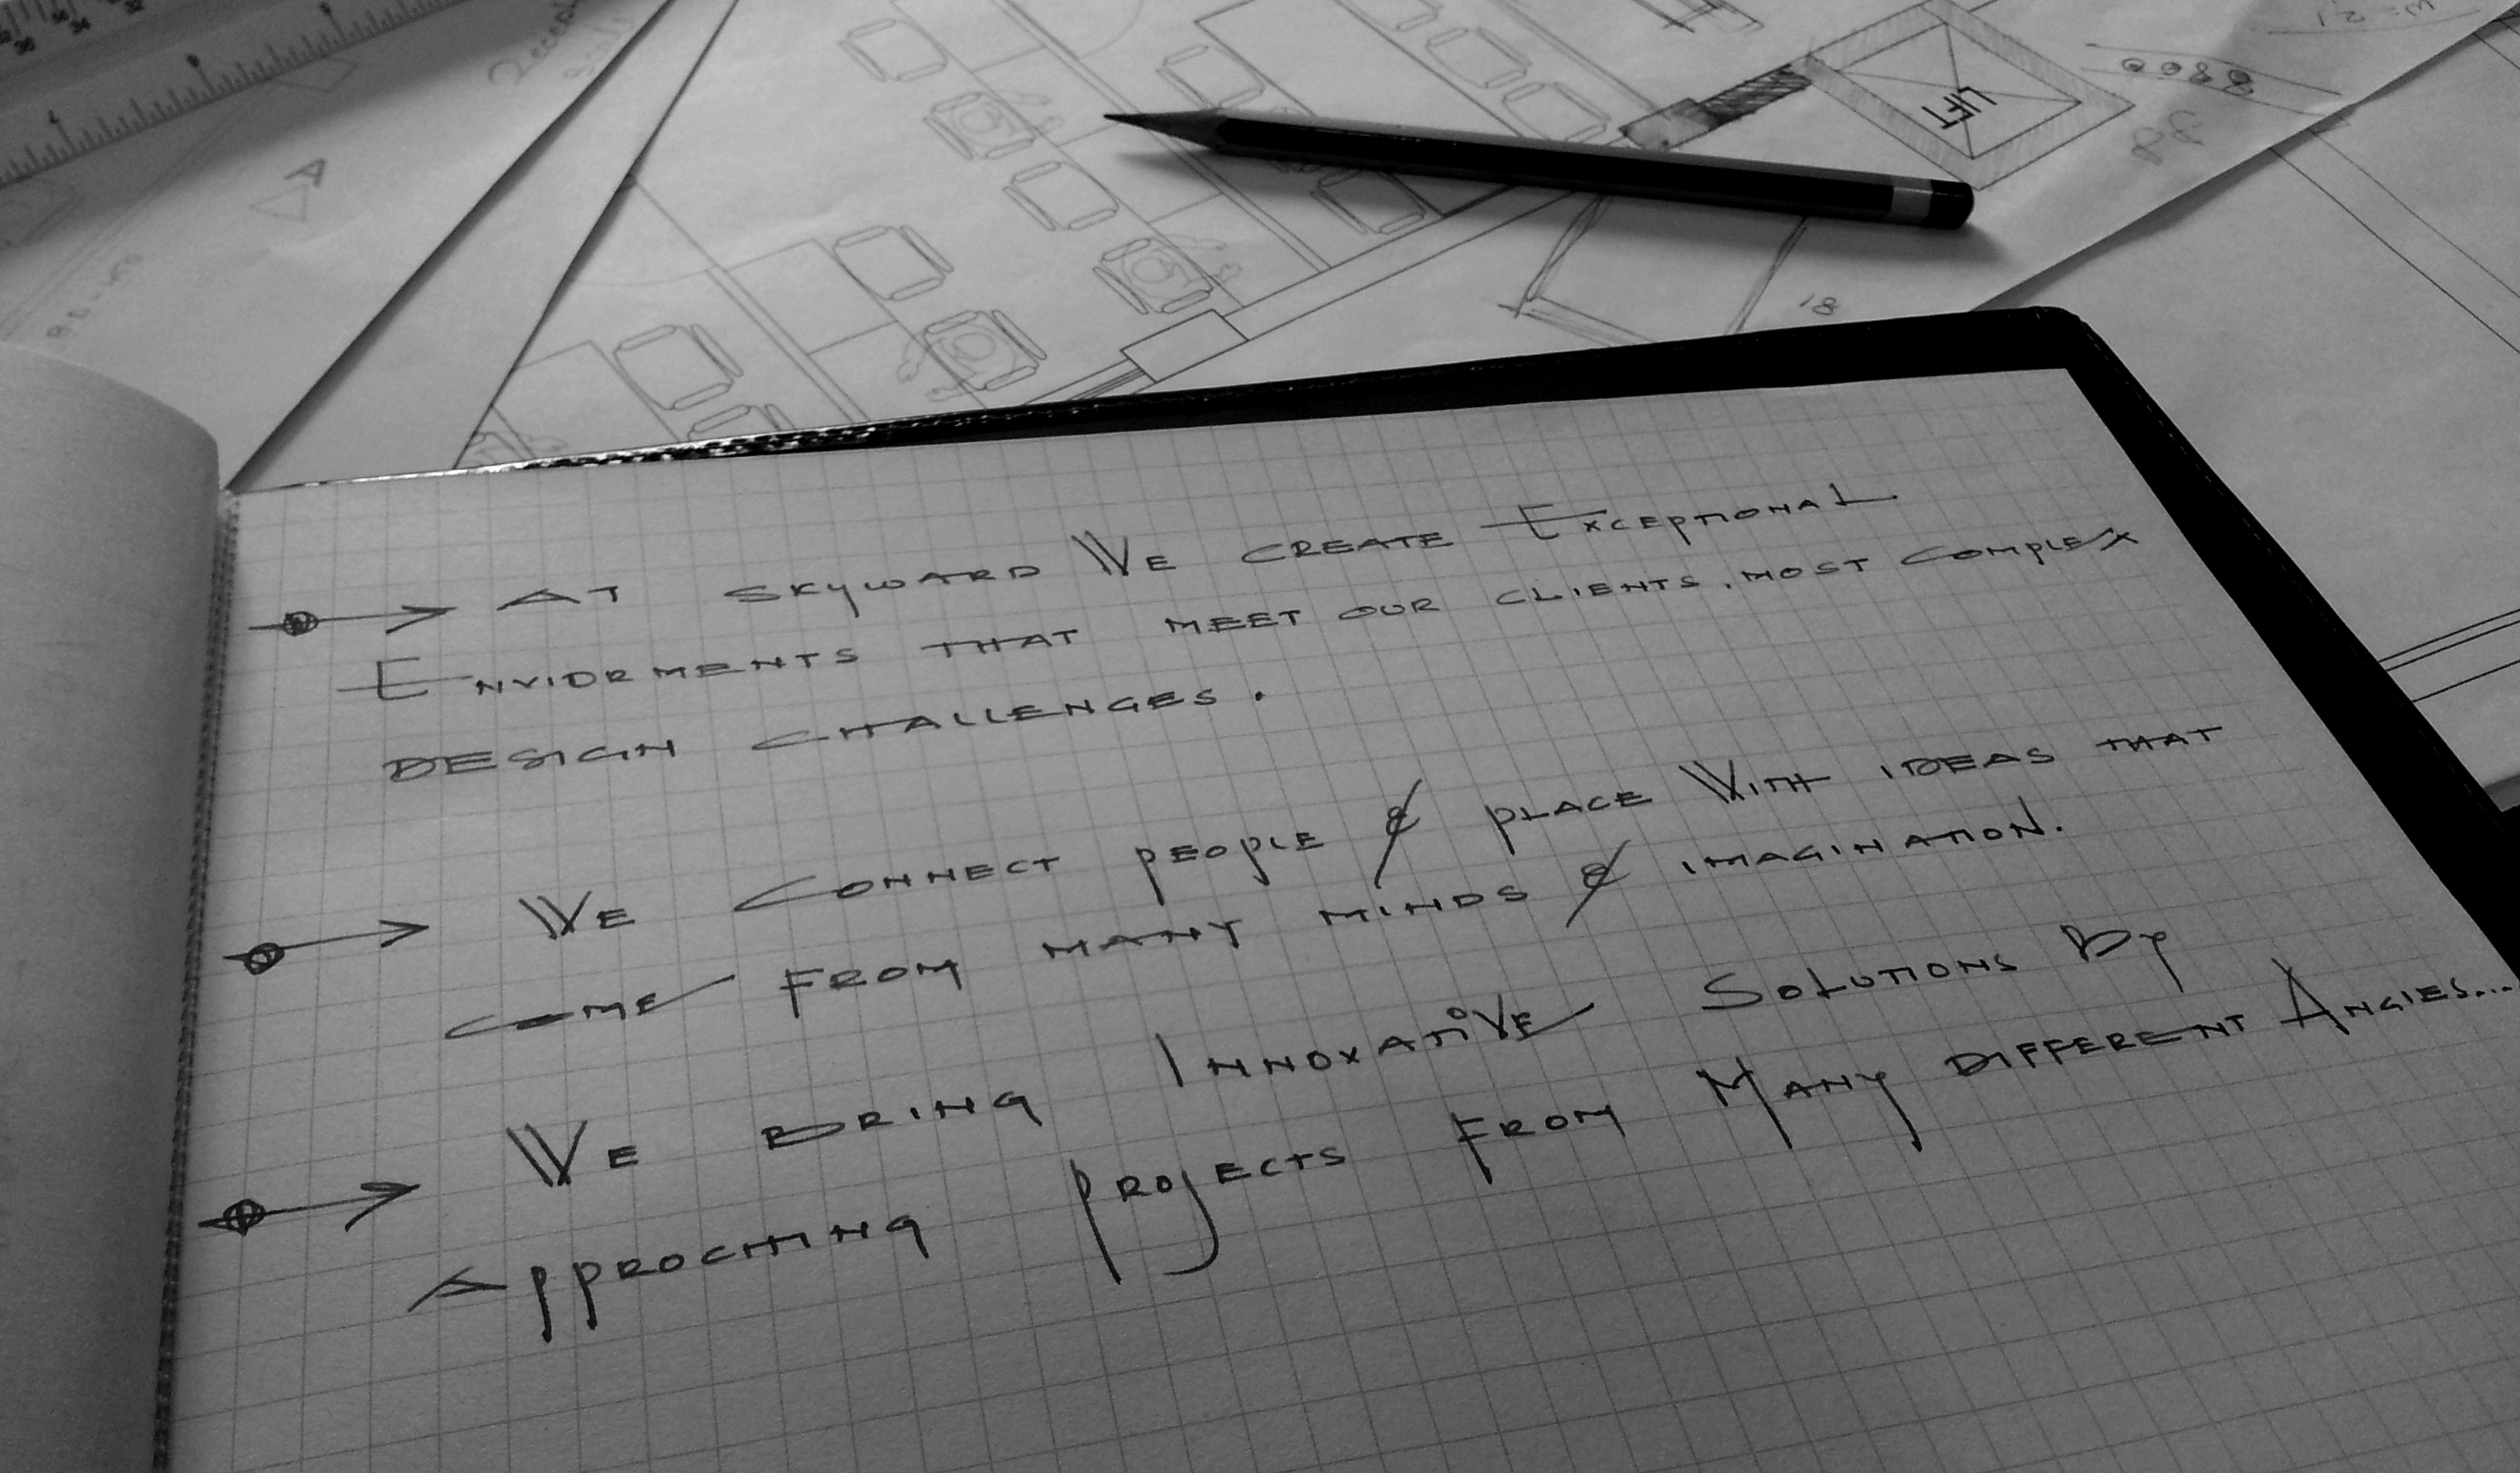 A
LIFT
18
AT SKYWARD WE CREATE EXCEPTIONAL
ENVIORMENTS THAT MEET OUR CLIENTS, MOST COMPLEX
DESIGN CHALLENGES.
WE CONNECT PEOPLE & PLACE WITH IDEAS THAT
COME FROM MANY MINDS & IMAGINATION.
WE BRING INNOVATIVE SOLUTIONS BY
APPROCHING PROJECTS FROM MANY DIFFERENT ANGLES...